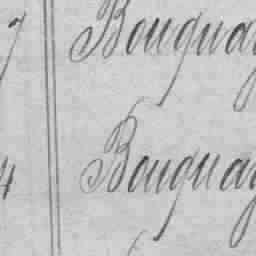 7 Bouquay
4 Bouquay